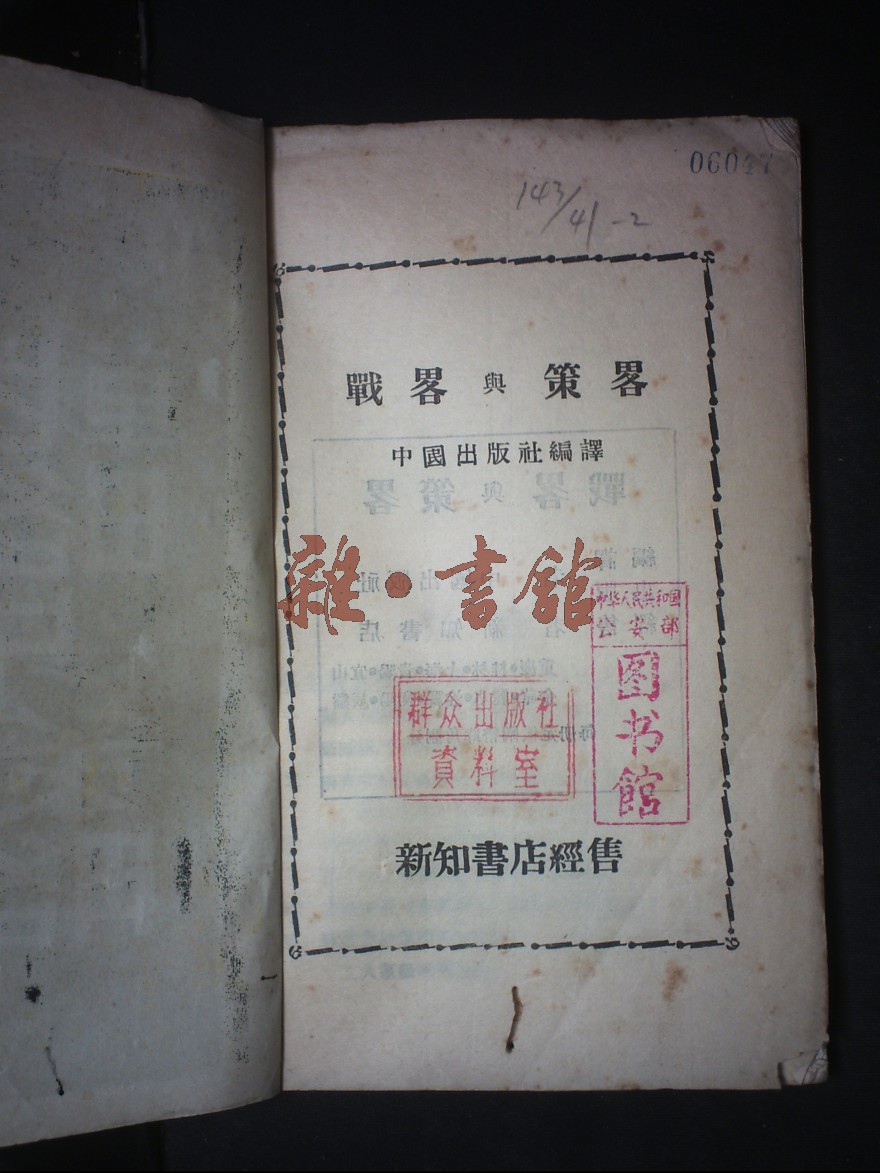 06047
143/41-2
戰畧與策畧
中國出版社編譯
雜·書館
中华人民共和国
公安部
图书馆
群众出版社
資料室
新知書店經售